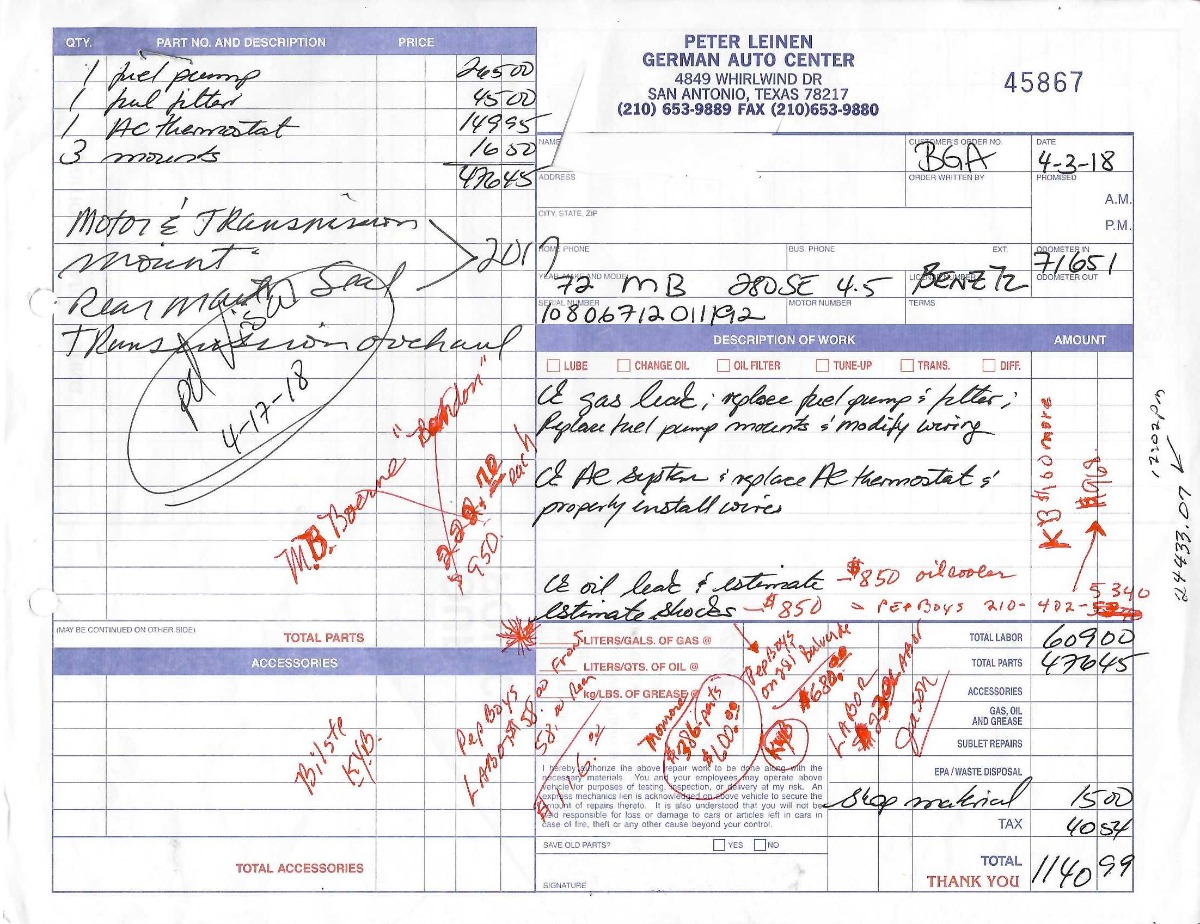 QTY. PART NO. AND DESCRIPTION PRICE
1 fuel pump 26500
1 fuel filter 4500
1 AC thermostat 14995
3 mounts 1650
47645
Motor & Transmission
mount
2017
Rear Main Seal
Transmission overhaul
pd Visa
4-17-18
M.B. Boerne "Brandon"
222.70 each
$950.
(MAY BE CONTINUED ON OTHER SIDE) TOTAL PARTS
ACCESSORIES
Bilste
KYB.
TOTAL ACCESSORIES
PETER LEINEN
GERMAN AUTO CENTER
4849 WHIRLWIND DR
SAN ANTONIO, TEXAS 78217
(210) 653-9889 FAX (210)653-9880
45867
NAME CUSTOMER'S ORDER NO. BGA DATE 4-3-18
ADDRESS ORDER WRITTEN BY PROMISED
A.M.
CITY, STATE, ZIP P.M.
HOME PHONE BUS. PHONE EXT. ODOMETER IN 71651
YEAR, MAKE AND MODEL 72 MB 280SE 4.5 LICENSE NUMBER BENZ72 ODOMETER OUT
SERIAL NUMBER 10806712011192 MOTOR NUMBER TERMS
DESCRIPTION OF WORK AMOUNT
LUBE CHANGE OIL OIL FILTER TUNE-UP TRANS. DIFF.
CK gas leak; replace fuel pump & filter;
Replace fuel pump mounts & modify wiring
CK AC system & replace AC thermostat &
properly install wires
KB $100 more
$968
12:02pm
24433.07
CK oil leak & estimate - $850 oil cooler
estimate shocks - $850 = PEP BOYS 210-402-5340
LITERS/GALS. OF GAS @ TOTAL LABOR 60900
LITERS/QTS. OF OIL @ TOTAL PARTS 47645
kg/LBS. OF GREASE @ ACCESSORIES
GAS, OIL
AND GREASE
SUBLET REPAIRS
Pep Boys
LABOR $58.00 Front
58.00 Rear
$116.00
Monroe
$386. parts
$600.00
Pep Boys
on 281
$680.00
KYB
LABOR
Jason
I hereby authorize the above repair work to be done along with the
necessary materials. You and your employees may operate above
vehicle for purposes of testing, inspection, or delivery at my risk. An
express mechanics lien is acknowledged on above vehicle to secure the
amount of repairs thereto. It is also understood that you will not be
held responsible for loss or damage to cars or articles left in cars in
case of fire, theft or any other cause beyond your control.
EPA / WASTE DISPOSAL
Shop material 1500
TAX 4054
SAVE OLD PARTS? YES NO
TOTAL 114099
THANK YOU
SIGNATURE